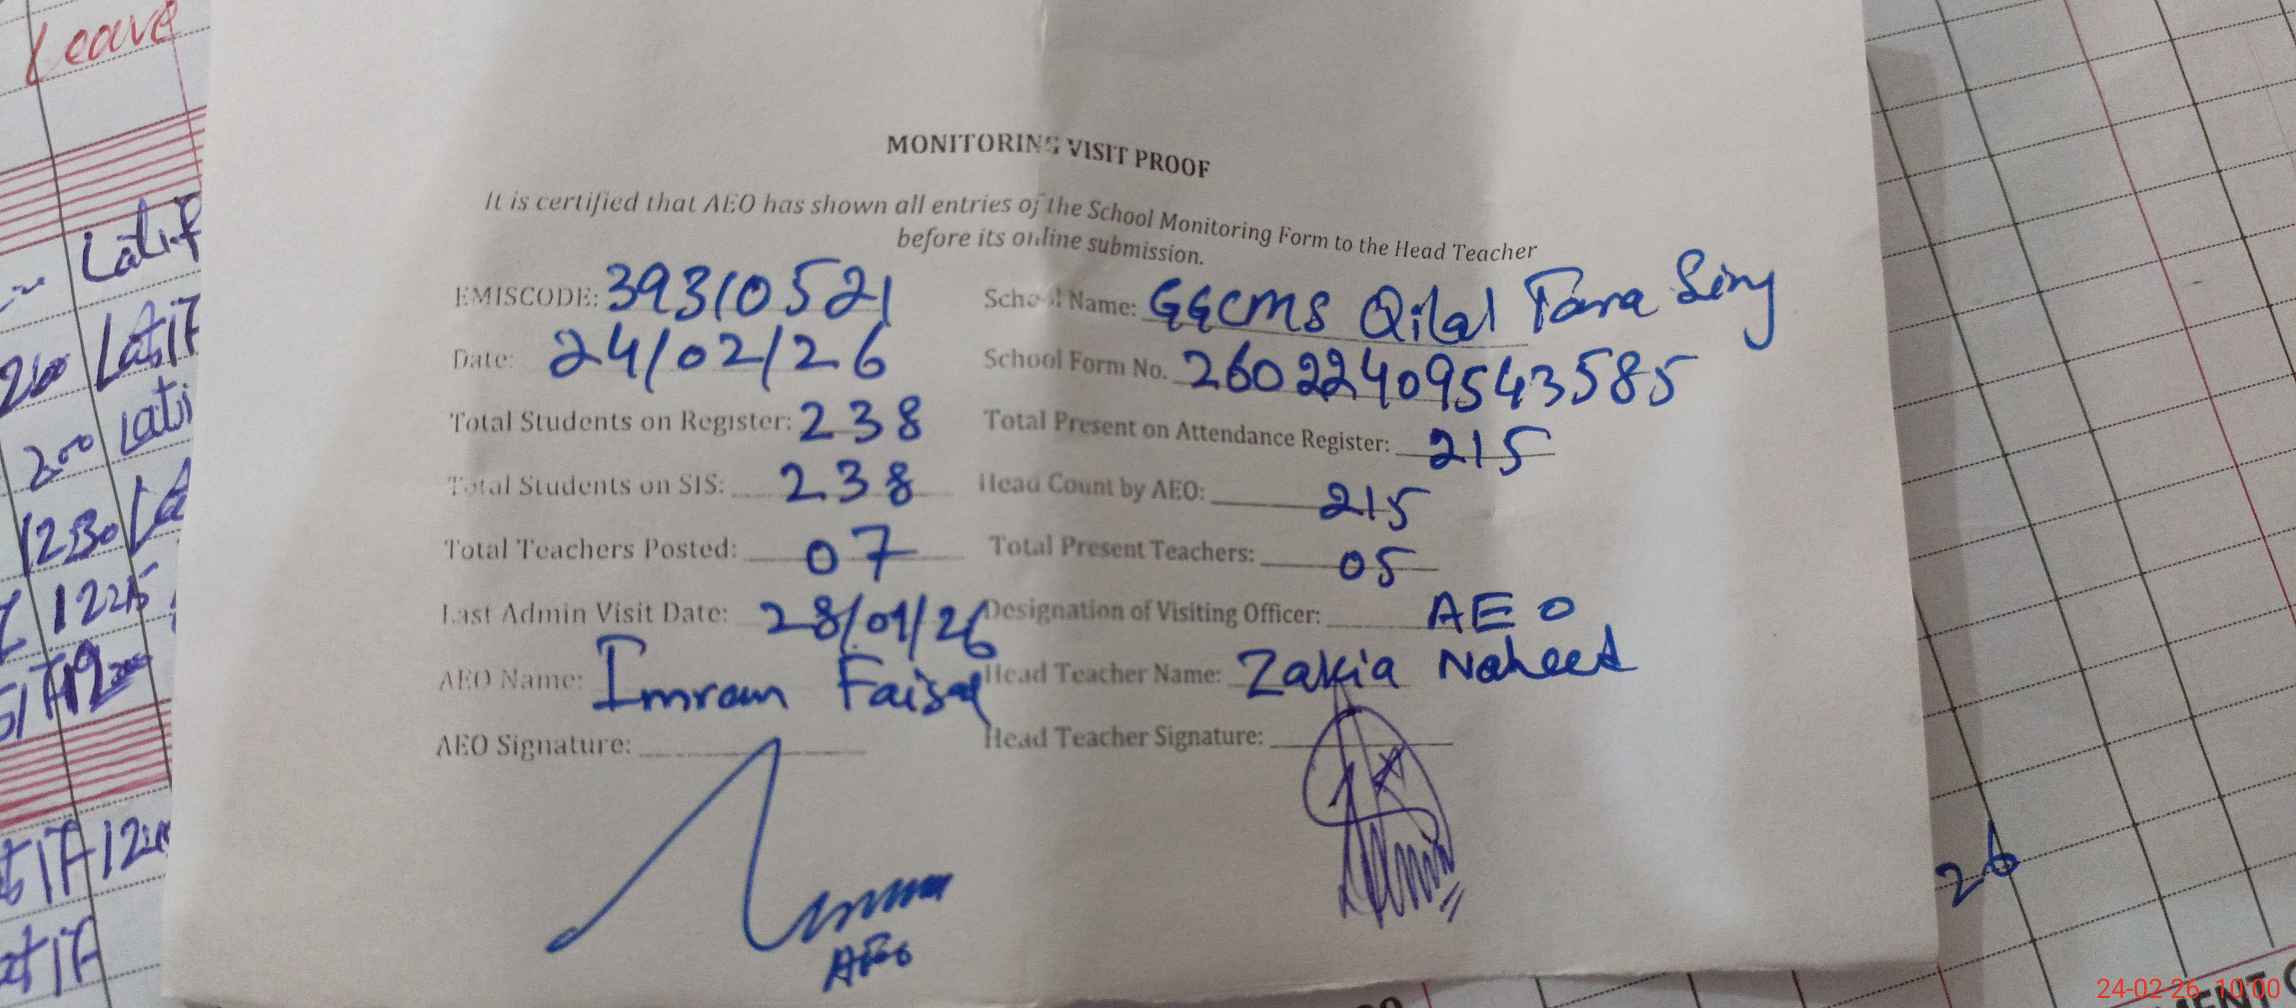 Leave
MONITORING VISIT PROOF
It is certified that AEO has shown all entries of the School Monitoring Form to the Head Teacher
before its online submission.
EMISCODE: 39310521 School Name: GGCMS Qilal Tara Sing
Date: 24/02/26 School Form No. 26022409543585
Total Students on Register: 238 Total Present on Attendance Register: 215
Total Students on SIS: 238 Head Count by AEO: 215
Total Teachers Posted: 07 Total Present Teachers: 05
Last Admin Visit Date: 28/01/26 Designation of Visiting Officer: AEO
AEO Name: Imran Faisal Head Teacher Name: Zakia Naheed
AEO Signature: Head Teacher Signature:
AEO
Latif
200 Latif
200 Lati
1230
1225
26
24-02-26 10:00